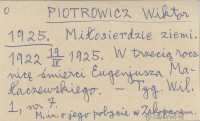 PIOTROWICZ Wiktor
1925. Miłosierdzie ziemi.
1922 19/IV 1925. W trzecią rocz
nicę śmierci Eugenjusza Ma-
łaczewskiego. — Tyg. Wil.
1, nr 7.
M. in. o jego pobycie w Zakopanem.